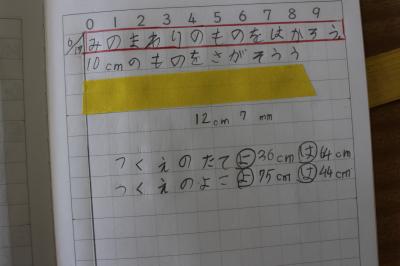 0 1 2 3 4 5 6 7 8 9
6/17 みのまありのものをはかろう。
10cmのものをさがそうう
12cm 7 mm
つくえのたてよ36cmは64cm
つくえのよこよ75cmは44cm